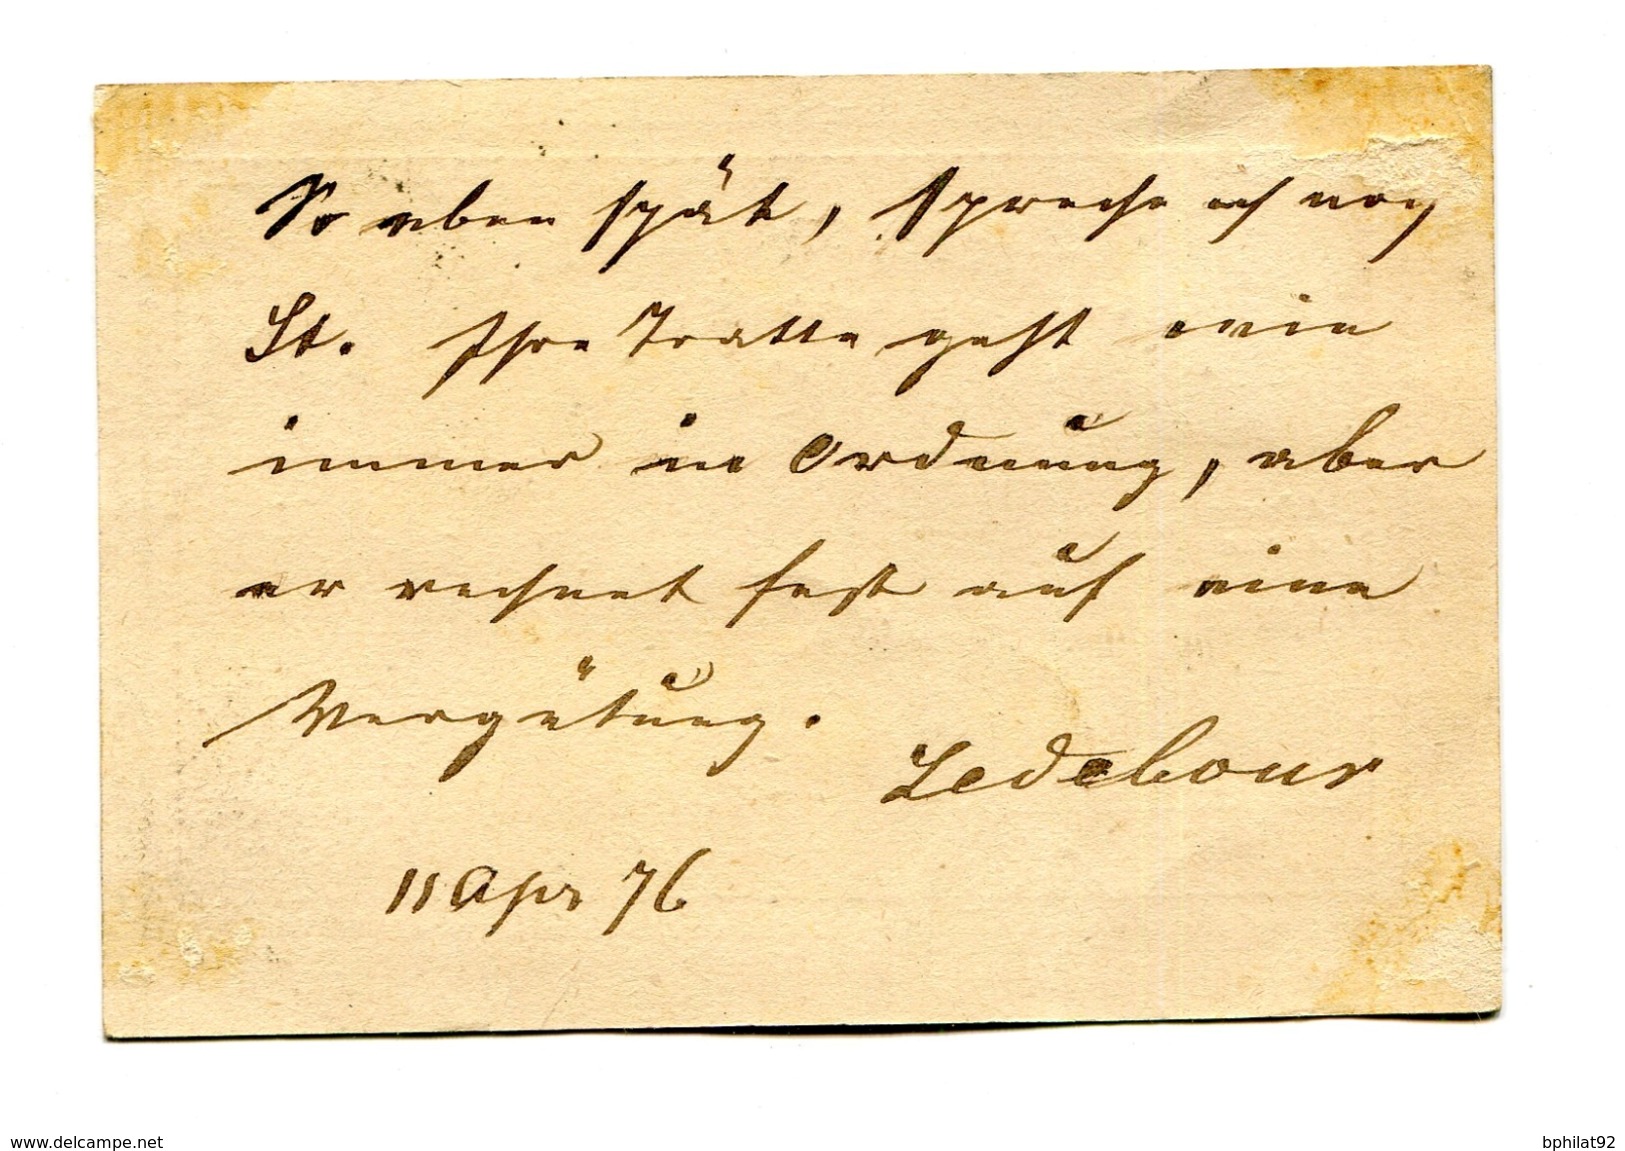 So eben spät, spreche ich noch
St. Ihre Tratte geht wie
immer in Ordnung, aber
er rechnet fest auf eine
Vergütung.
Ledebour
11 Apr 76
www.delcampe.net
bphilat92